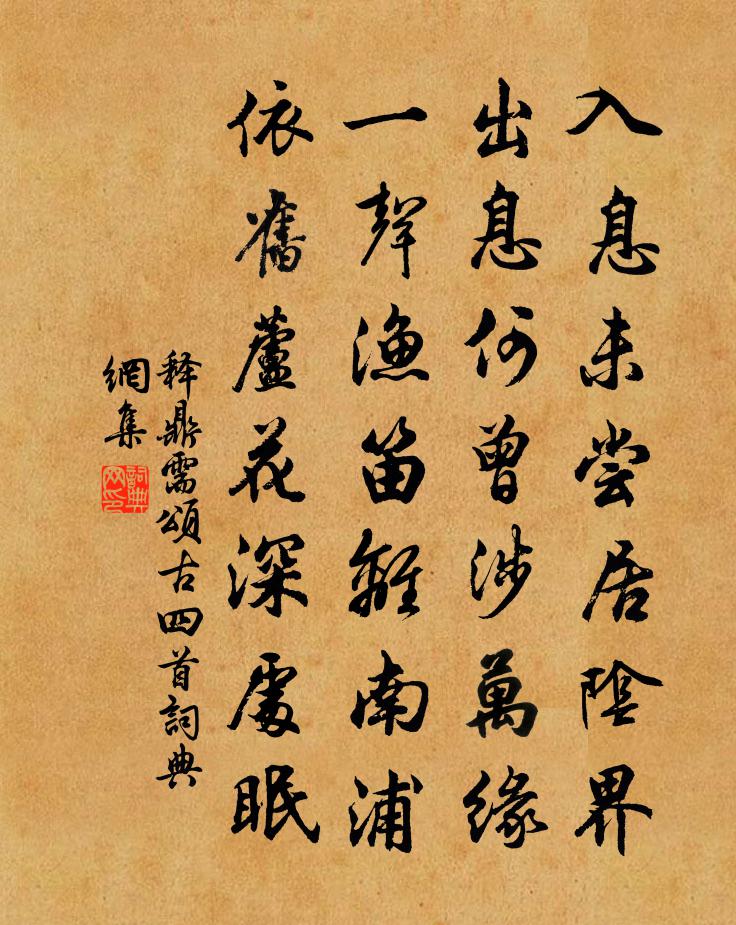 入息未嘗居陰界
出息何曾涉萬緣
一聲漁笛離南浦
依舊蘆花深處眠
释鼎需頌古四首詞典
網集
詞典
网印